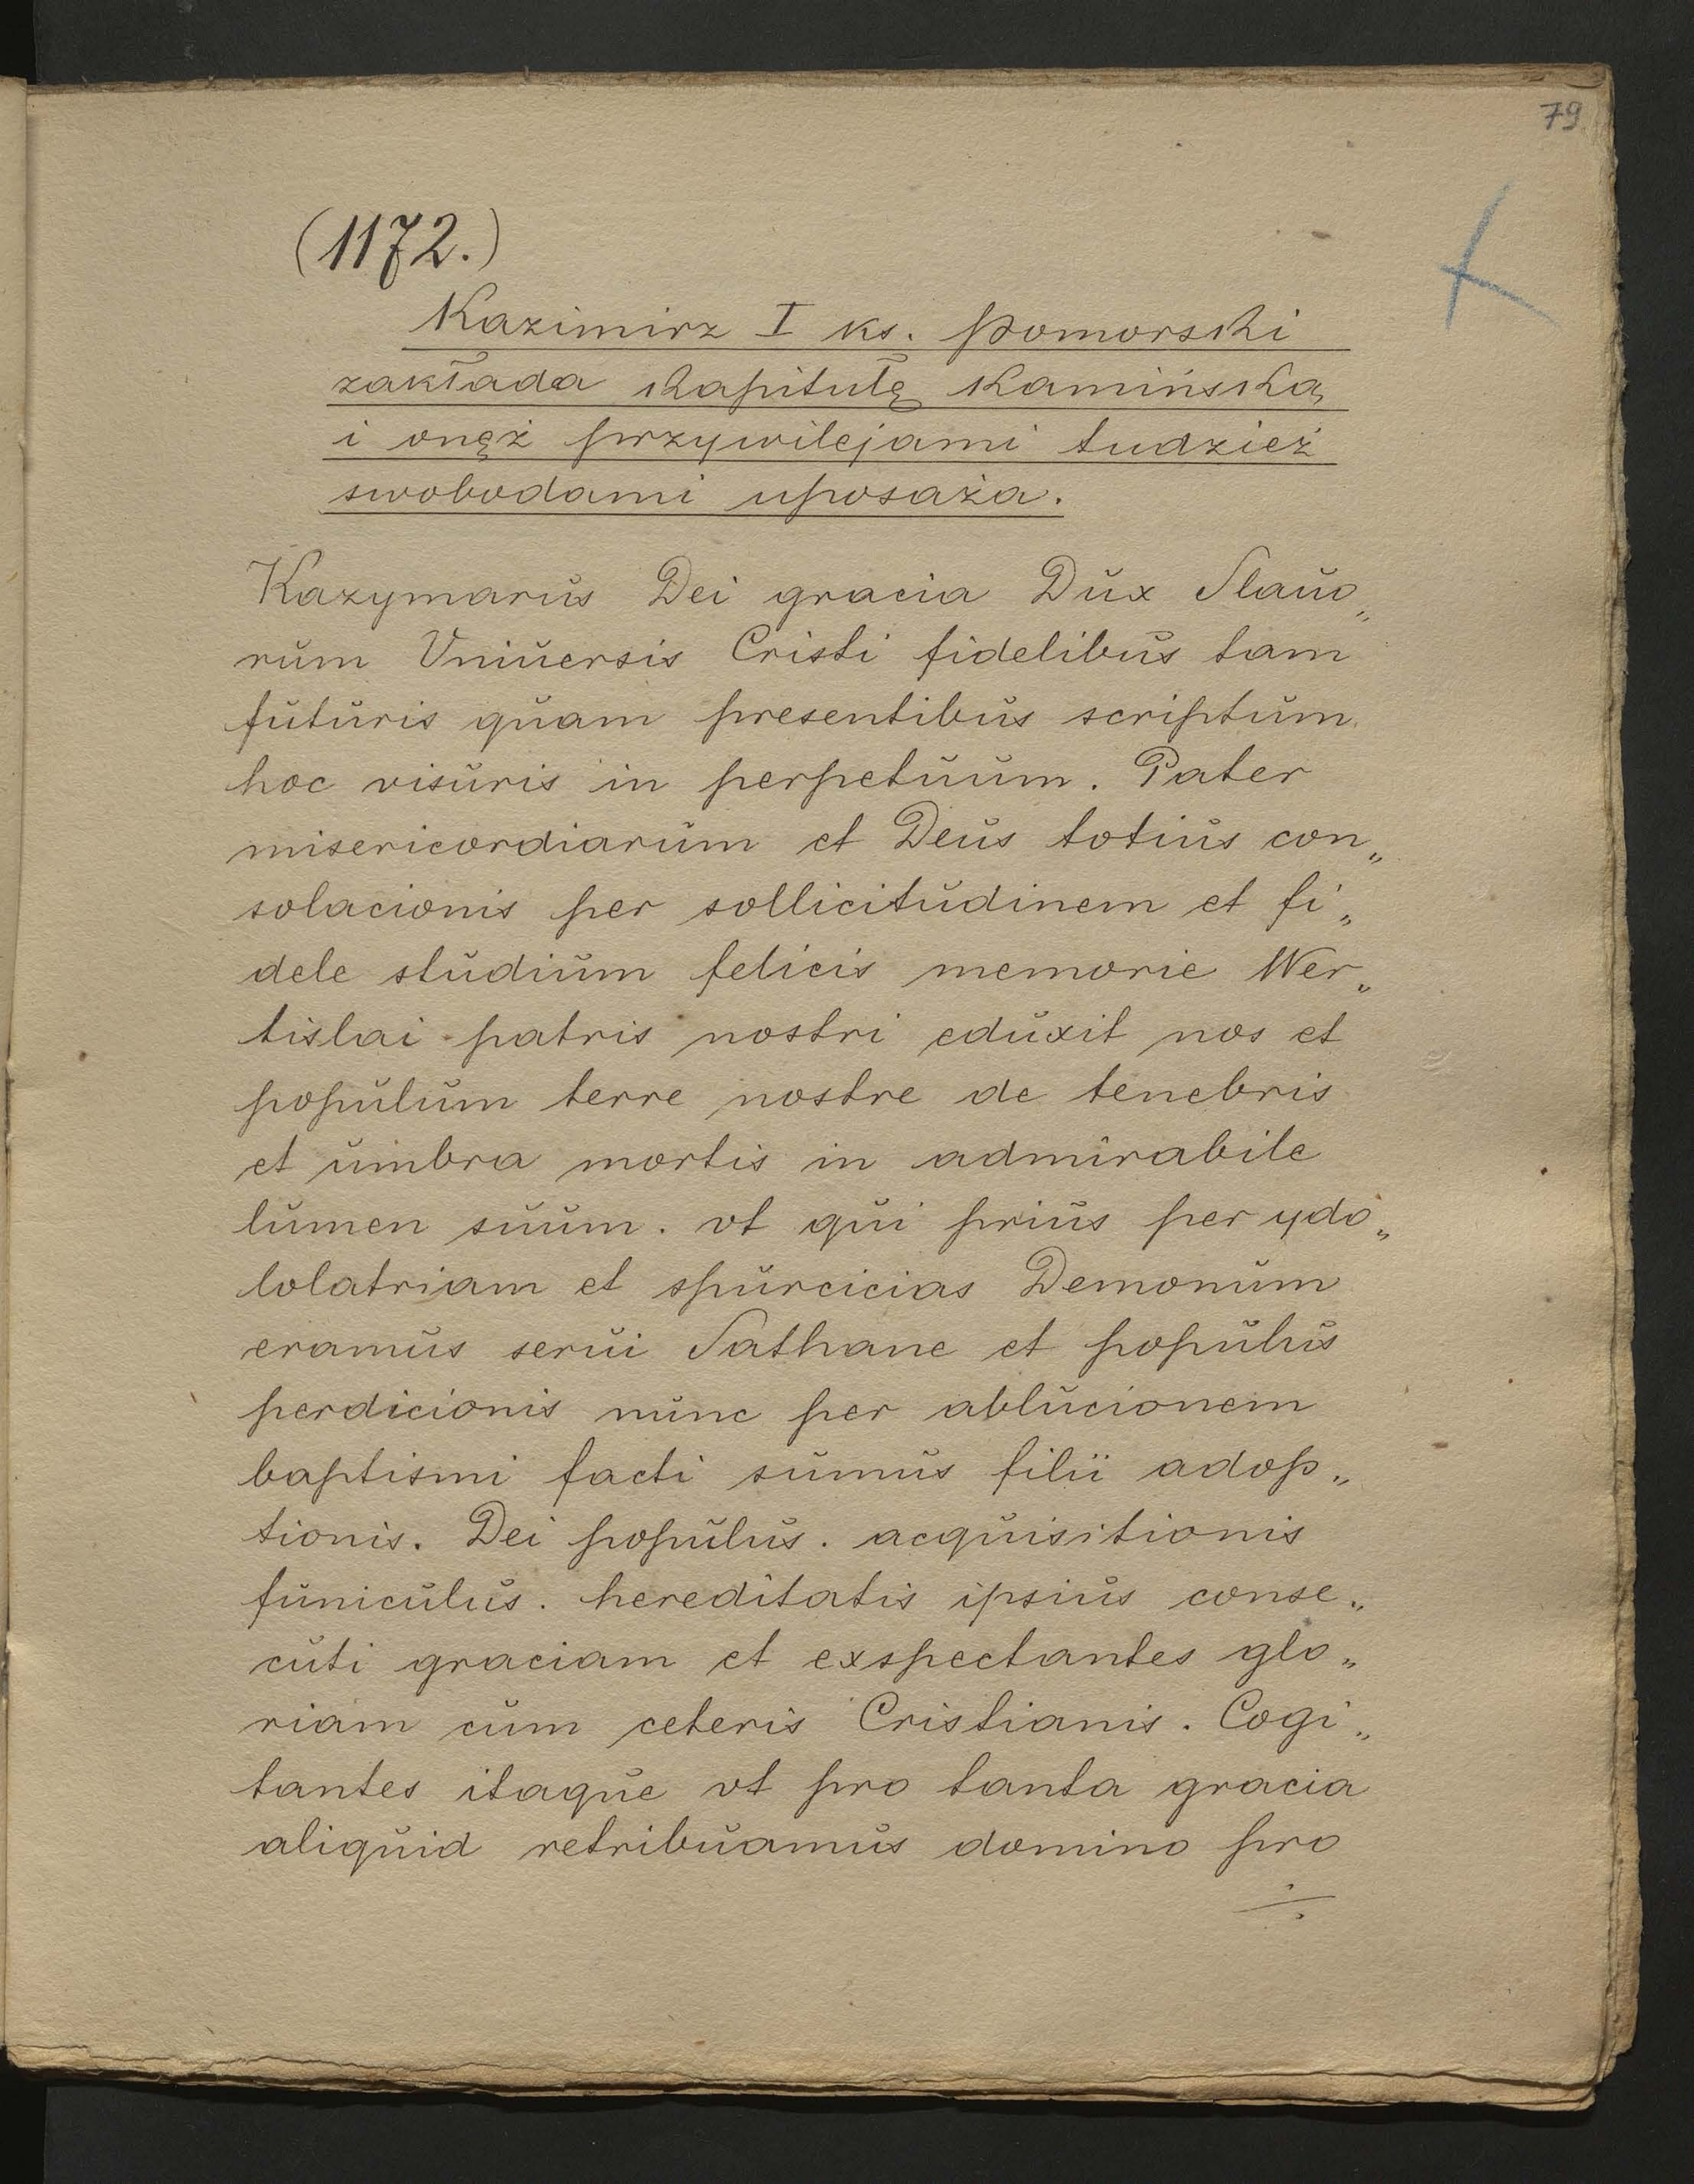 79
(1172.)
Kazimirz I ks. Pomorski
zakłada kapitułę Kamińską
i onęż przywilejami tudzież
swobodami uposaża.
Kazymarus Dei gracia Dux Slauo„
rum Vniuersis Cristi fidelibus tam
futuris quam presentibus scriptum
hoc visuris in perpetuum. Pater
misericordiarum et Deus totius con„
solacionis per sollicitudinem et fi„
dele studium felicis memorie Wer„
tislai patris nostri eduxit nos et
populum terre nostre de tenebris
et umbra mortis in admirabile
lumen suum. vt qui prius per ydo„
lolatriam et spurcicias Demonum
eramus serui Sathane et populus
perdicionis nunc per ablucionem
baptismi facti sumus filii adop„
tionis. Dei populus. acquisitionis
funiculus. hereditatis ipsius conse„
cuti graciam et exspectantes glo„
riam cum ceteris Cristianis. Cogi„
tantes itaque vt pro tanta gracia
aliquid retribuamus domino pro